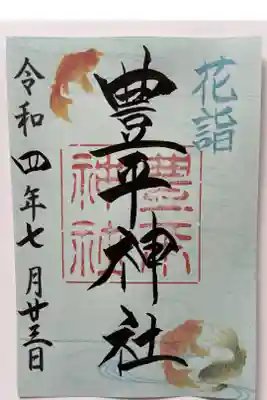 花詣
豊平神社
豊平
神社
令和四年七月廿三日